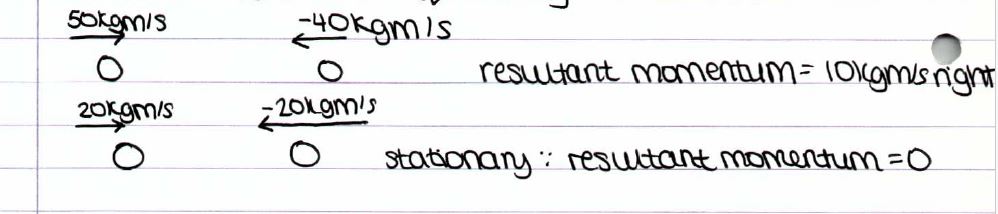 50kgm/s -40kgm/s
resultant momentum = 10kgm/s right
20kgm/s -20kgm/s
stationary ∵ resultant momentum = 0